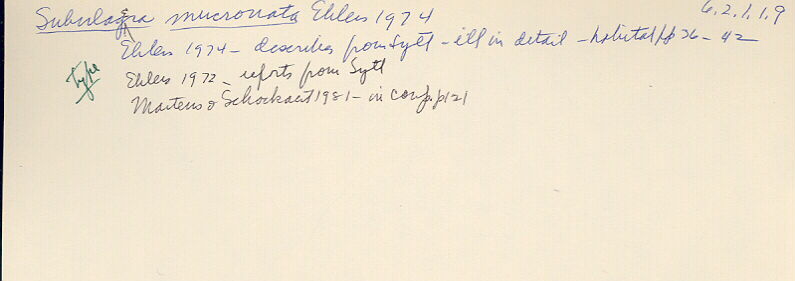 Subulagera mucronata Ehlers 1974 6.2.1.1.9
Ehlers 1974 - describes from Sylt - ill in detail - habitat pp 36 - 42
Type
Ehlers 1972 - reports from Sylt
Martens & Schockaert 1981 - in comp. p 121